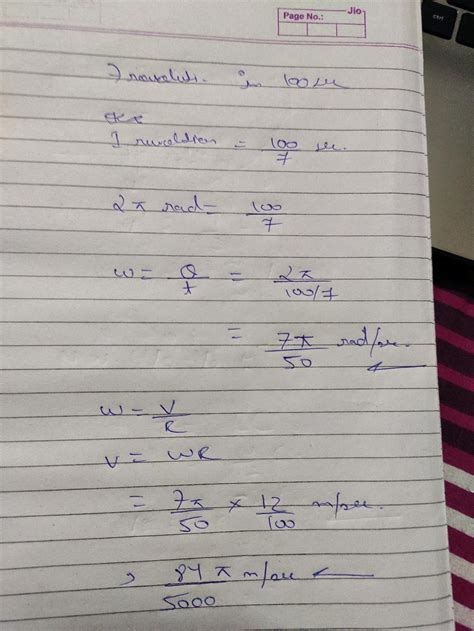 Jio
Page No.:
7 revolution in 100 sec
1 revolution = 100/7 sec.
2π rad = 100/7
w = θ/t = 2π/100/7
= 7π/50 rad/sec.
w = V/R
V = WR
= 7π/50 × 12/100 m/sec.
, 84 π m/sec
5000